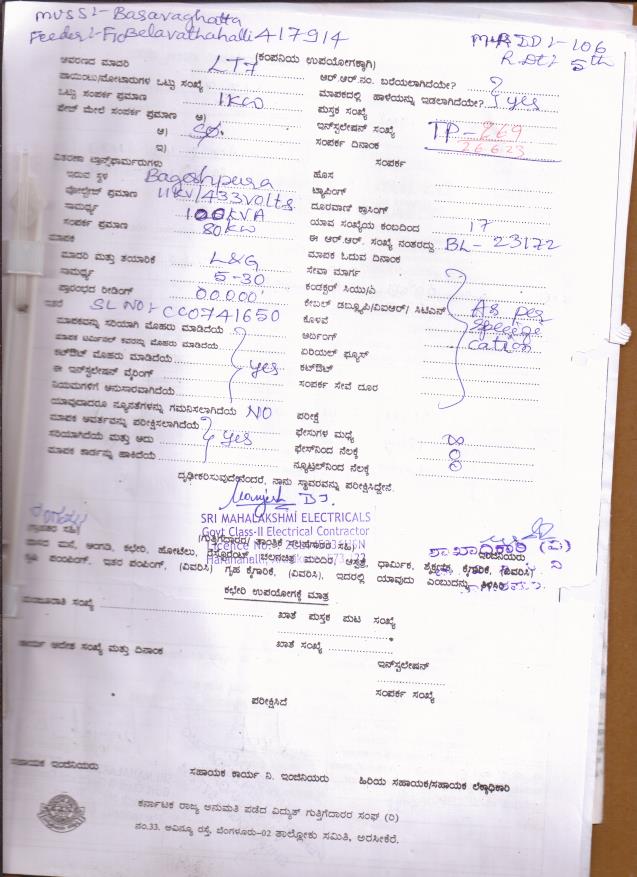 MUSS:- Basavaghatta
Feeder:- F10 Belavathahalli 417914
MRID:- 106
R Dt:- 5th
(ಕಂಪನಿಯ ಉಪಯೋಗಕ್ಕಾಗಿ)
ಆವರಣದ ಮಾದರಿ LT7 ಆರ್.ಆರ್.ನಂ. ಬರೆಯಲಾಗಿದೆಯೇ?
ಪಾಯಿಂಟು/ಮೋಟಾರುಗಳ ಒಟ್ಟು ಸಂಖ್ಯೆ ಮಾಪಕದಲ್ಲಿ ಹಾಳೆಯನ್ನು ಇಡಲಾಗಿದೆಯೇ? yes
ಒಟ್ಟು ಸಂಪರ್ಕ ಪ್ರಮಾಣ 1KW ಪುಸ್ತಕ ಸಂಖ್ಯೆ
ಪೇಜ್ ಮೇಲೆ ಸಂಪರ್ಕ ಪ್ರಮಾಣ ಅ) ಇನ್‌ಸ್ಟಲೇಷನ್ ಸಂಖ್ಯೆ TP-269
ಆ) ಸಂಪರ್ಕ ದಿನಾಂಕ 26.6.23
ಇ) ಸಂಪರ್ಕ
ವಿತರಣಾ ಟ್ರಾನ್ಸ್‌ಫಾರ್ಮರುಗಳು
ಇರುವ ಸ್ಥಳ Bageshpura ಹೊಸ
ವೋಲ್ಟೇಜ್ ಪ್ರಮಾಣ 11KV/433volts ಟ್ಯಾಪಿಂಗ್
ಸಾಮರ್ಥ್ಯ 100KVA ದೂರವಾಣಿ ಕ್ರಾಸಿಂಗ್
ಸಂಪರ್ಕ ಪ್ರಮಾಣ 80KW ಯಾವ ಸಂಖ್ಯೆಯ ಕಂಬದಿಂದ 17
ಮಾಪಕ ಈ ಆರ್.ಆರ್. ಸಂಖ್ಯೆ ನಂತರದ್ದು BL-23172
ಮಾದರಿ ಮತ್ತು ತಯಾರಿಕೆ L&G ಮಾಪಕ ಓದುವ ದಿನಾಂಕ
ಸಾಮರ್ಥ್ಯ 5-30 ಸೇವಾ ಮಾರ್ಗ
ಪ್ರಾರಂಭದ ರೀಡಿಂಗ್ 00000 ಕಂಡಕ್ಟರ್ ಸಿಯು/ಎ
ಇತರೆ SL NO:- CC0741650 ಕೇಬಲ್ ಡಬ್ಲ್ಯೂಪಿ/ವಿಐಆರ್/ ಸಿಟಿಎಸ್ As per
ಮಾಪಕವನ್ನು ಸರಿಯಾಗಿ ಮೊಹರು ಮಾಡಿದೆಯೆ ಕೊಳವೆ
ಮಾಪಕ ಟರ್ಮಿನಲ್ ಕವರನ್ನು ಮೊಹರು ಮಾಡಿದೆಯೆ ಅರ್ಥಿಂಗ್ cation
ಕಟ್‌ಔಟ್ ಮೊಹರು ಮಾಡಿದೆಯೆ yes ಏರಿಯಲ್ ಫ್ಯೂಸ್
ಈ ಇನ್‌ಸ್ಟಲೇಷನ್ ವೈರಿಂಗ್ ಕಟ್‌ಔಟ್
ನಿಯಮಗಳಿಗೆ ಅನುಸಾರವಾಗಿದೆಯೆ ಸಂಪರ್ಕ ಸೇವೆ ದೂರ
ಯಾವುದಾದರೂ ನ್ಯೂನತೆಗಳನ್ನು ಗಮನಿಸಲಾಗಿದೆಯೆ NO ಪರೀಕ್ಷೆ
ಮಾಪಕ ಆವರ್ತವನ್ನು ಪರೀಕ್ಷಿಸಲಾಗಿದೆಯೆ
ಸರಿಯಾಗಿದೆಯೆ ಮತ್ತು ಅದು yes ಫೇಸುಗಳ ಮಧ್ಯೆ
ಮಾಪಕ ಕಾರ್ಡನ್ನು ಹಾಕಿದೆಯೆ ಫೇಸ್‌ನಿಂದ ನೆಲಕ್ಕೆ
ನ್ಯೂಟ್ರಲ್‌ನಿಂದ ನೆಲಕ್ಕೆ
ದೃಢೀಕರಿಸುವುದೇನೆಂದರೆ, ನಾನು ಸ್ಥಾವರವನ್ನು ಪರೀಕ್ಷಿಸಿದ್ದೇನೆ.
SRI MAHALAKSHMI ELECTRICALS
Govt Class-II Electrical Contractor
ಇಂಜಿನಿಯರು
ಕಛೇರಿ ಉಪಯೋಗಕ್ಕೆ ಮಾತ್ರ
ಮಂಜೂರಾತಿ ಸಂಖ್ಯೆ ಖಾತೆ ಪುಸ್ತಕ ಪುಟ ಸಂಖ್ಯೆ
ಕಾರ್ಯ ಆದೇಶ ಸಂಖ್ಯೆ ಮತ್ತು ದಿನಾಂಕ ಖಾತೆ ಸಂಖ್ಯೆ
ಇನ್‌ಸ್ಟಲೇಷನ್
ಸಂಪರ್ಕ ಸಂಖ್ಯೆ
ಪರೀಕ್ಷಿಸಿದೆ
ಸಹಾಯಕ ಇಂಜಿನಿಯರು ಸಹಾಯಕ ಕಾರ್ಯ ನಿ. ಇಂಜಿನಿಯರು ಹಿರಿಯ ಸಹಾಯಕ/ಸಹಾಯಕ ಲೆಕ್ಕಾಧಿಕಾರಿ
ಕರ್ನಾಟಕ ರಾಜ್ಯ ಅನುಮತಿ ಪಡೆದ ವಿದ್ಯುತ್ ಗುತ್ತಿಗೆದಾರರ ಸಂಘ (ರಿ)
ನಂ.33, ಅವಿನ್ಯೂ ರಸ್ತೆ, ಬೆಂಗಳೂರು-02 ತಾಲ್ಲೋಕು ಸಮಿತಿ, ಅರಸೀಕೆರೆ.